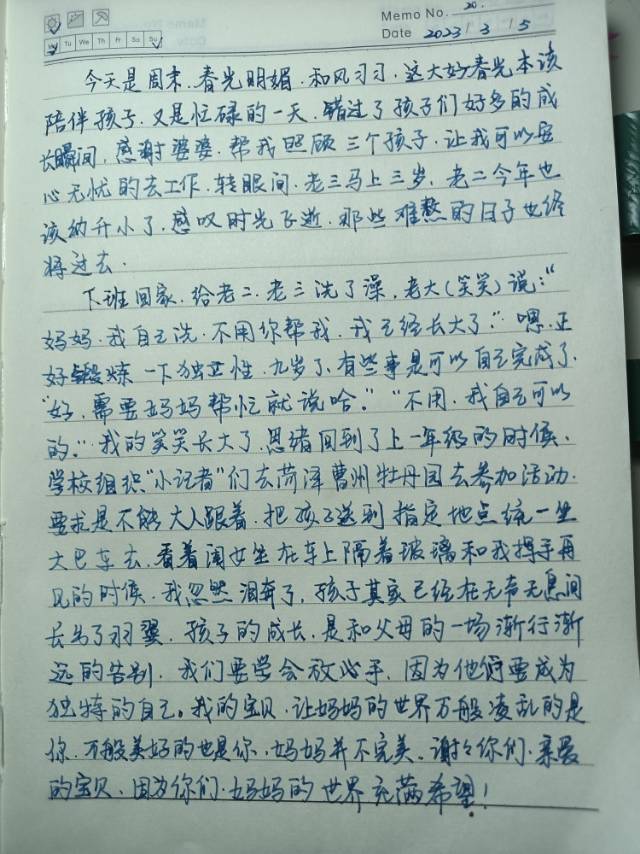 Memo No. 20.
Mo Tu We Th Fr Sa Su
Date 2023 / 3 / 5
今天是周末.春光明媚.和风习习.这大好春光本该
陪伴孩子.又是忙碌的一天.错过了孩子们好多的成
长瞬间.感谢婆婆.帮我照顾三个孩子.让我可以安
心无忧的去工作.转眼间.老三马上三岁.老二今年也
该幼升小了.感叹时光飞逝.那些难熬的日子也终
将过去.
下班回家.给老二.老三洗了澡,老大(笑笑)说:“
妈妈.我自己洗.不用你帮我.我已经长大了.”嗯.正
好锻炼一下独立性.九岁了.有些事是可以自己完成了.
“好,需要妈妈帮忙就说哈.”“不用.我自己可以
的.”我的笑笑长大了.思绪回到了上一年级的时候.
学校组织“小记者”们去菏泽曹州牡丹园去参加活动.
要求是不能大人跟着.把孩子送到指定地点统一坐
大巴车去.看着闺女坐在车上隔着玻璃和我挥手再
见的时候.我忽然泪奔了,孩子其实已经在无声无息间
长出了羽翼.孩子的成长.是和父母的一场渐行渐
远的告别.我们要学会放心手.因为他们要成为
独特的自己。我的宝贝.让妈妈的世界万般凌乱的是
你.万般美好的也是你.妈妈并不完美.谢谢你们.亲爱
的宝贝.因为你们.妈妈的世界充满希望!